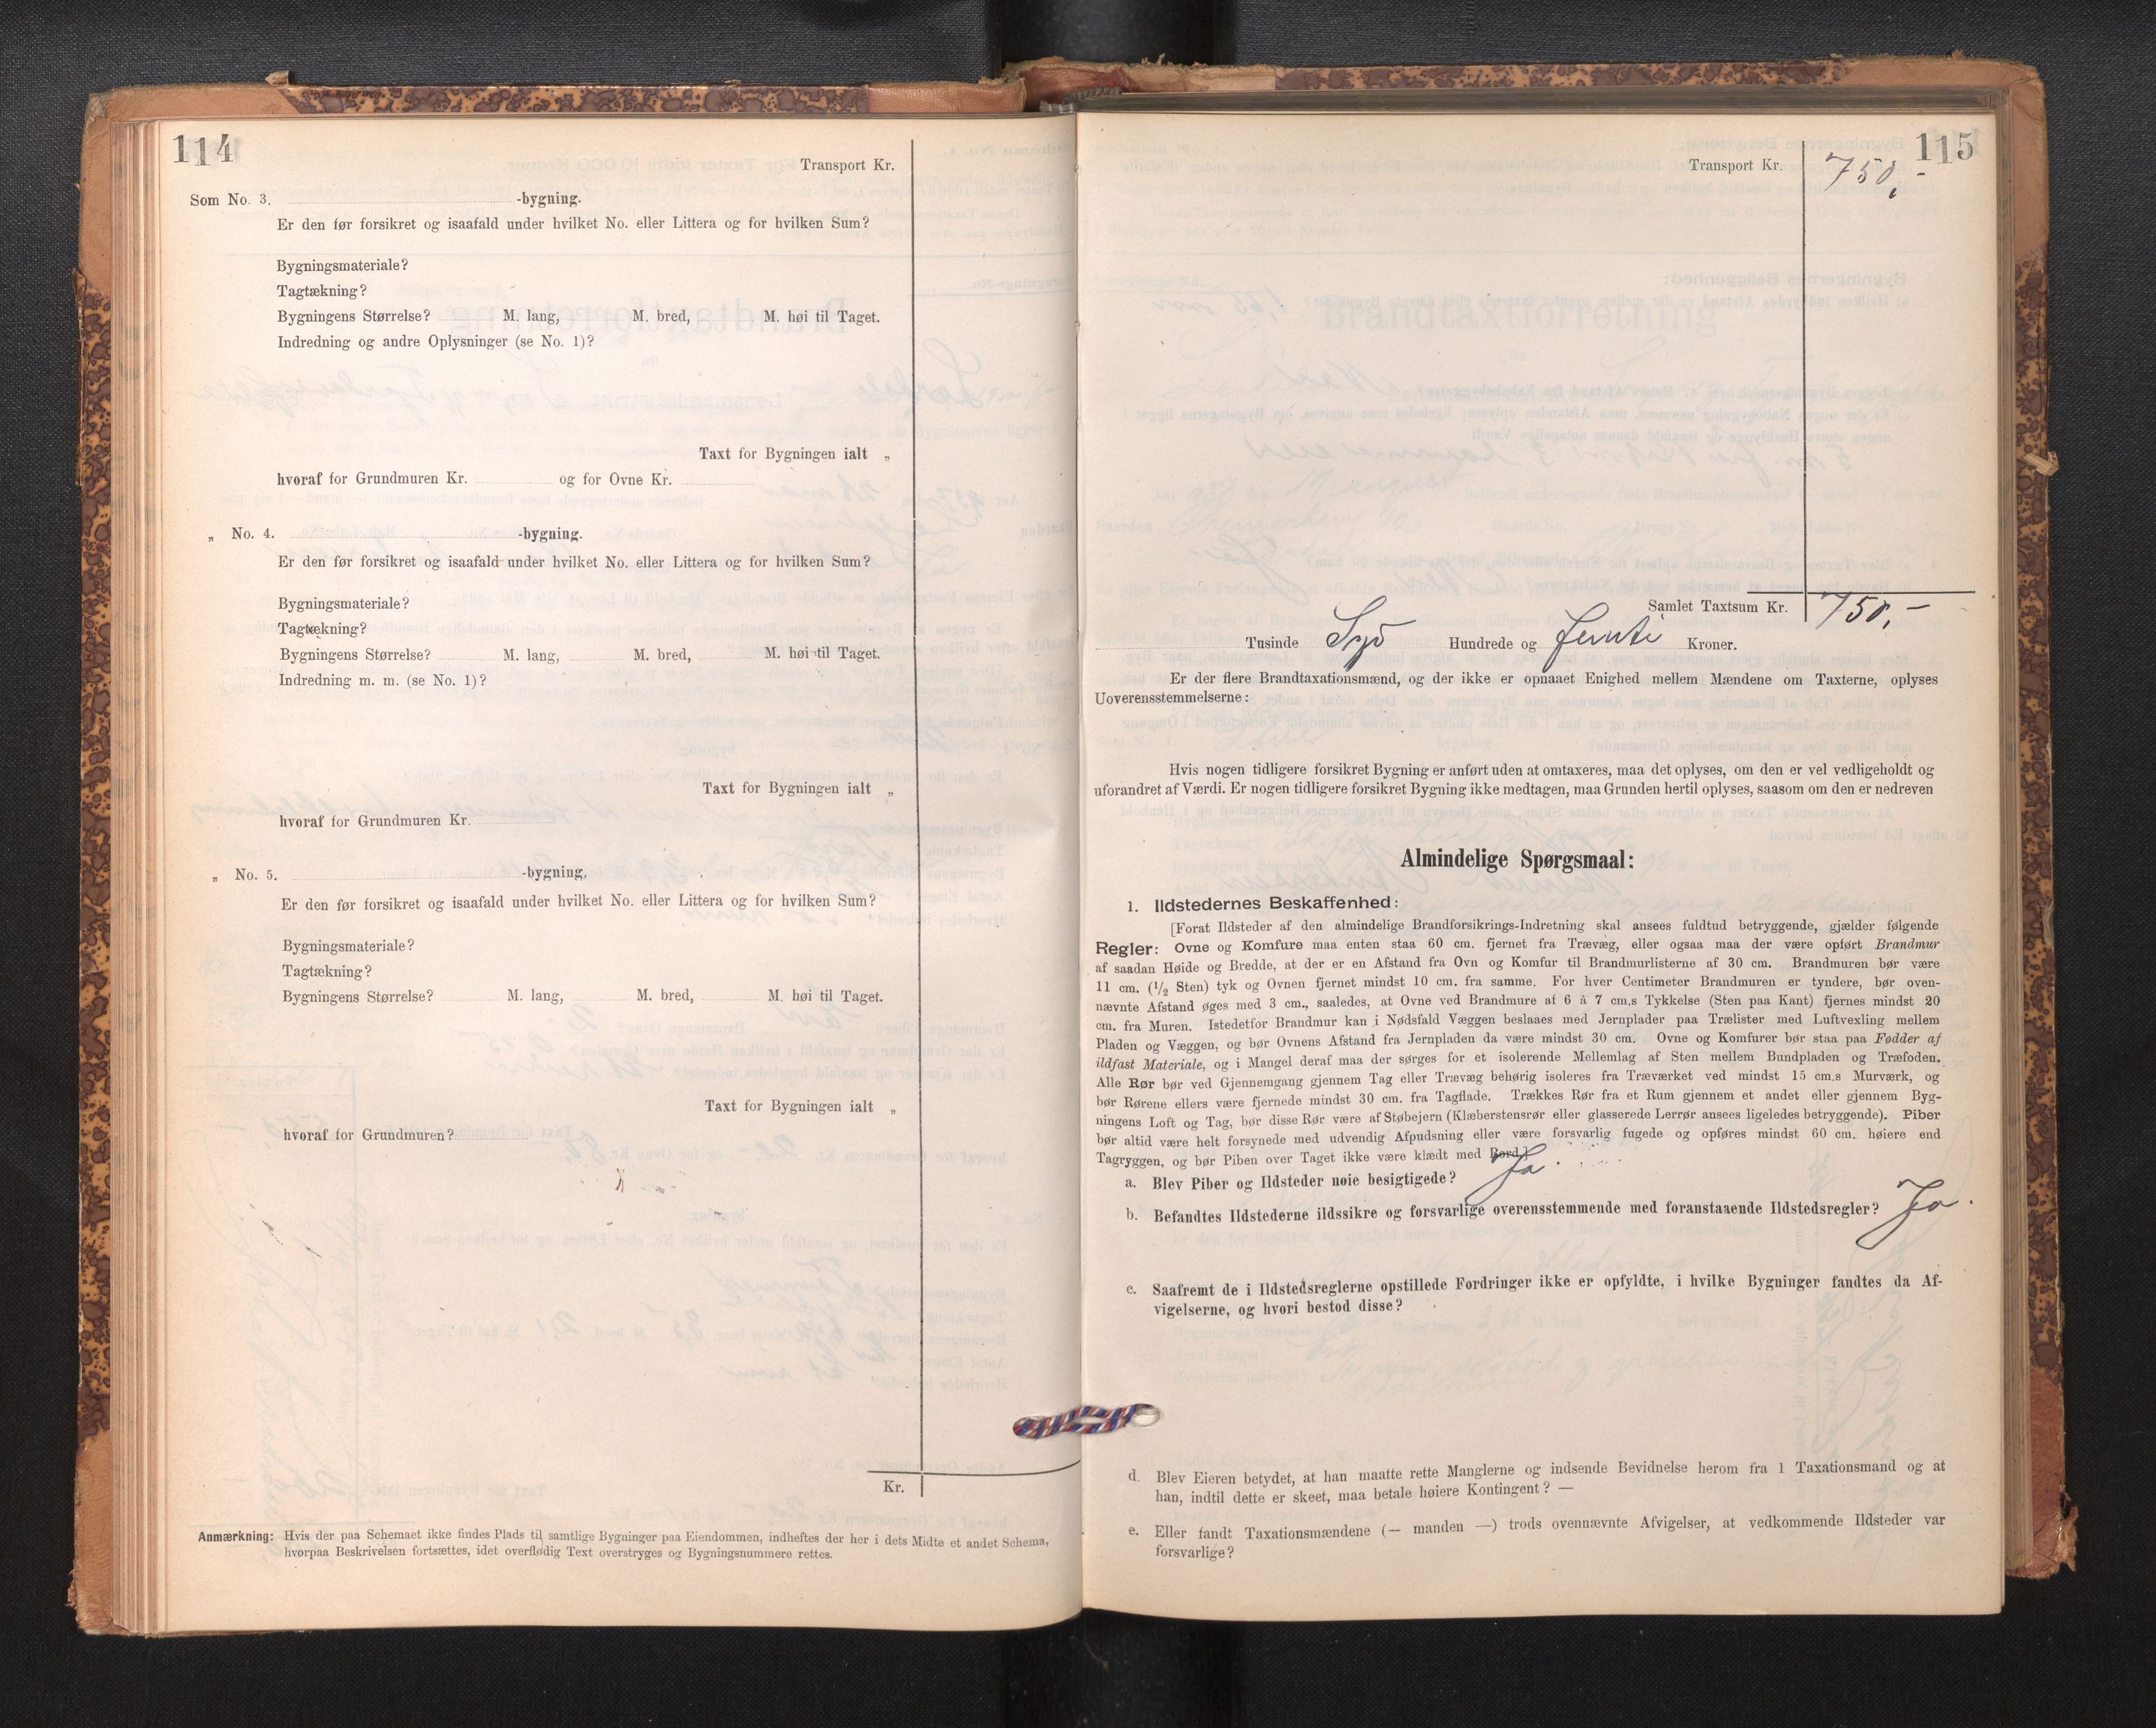 114
Transport Kr.
Som No. 3. -bygning.
Er den før forsikret og isaafald under hvilket No. eller Littera og for hvilken Sum?
Bygningsmateriale?
Tagtækning?
Bygningens Størrelse? M. lang, M. bred, M. høi til Taget.
Indredning og andre Oplysninger (se No. 1)?
Taxt for Bygningen ialt „
hvoraf for Grundmuren Kr. og for Ovne Kr.
„ No. 4. -bygning.
Er den før forsikret og isaafald under hvilket No. eller Littera og for hvilken Sum?
Bygningsmateriale?
Tagtækning?
Bygningens Størrelse? M. lang, M. bred, M. høi til Taget.
Indredning m. m. (se No. 1)?
Taxt for Bygningen ialt „
hvoraf for Grundmuren Kr.
„ No. 5. -bygning,
Er den før forsikret og isaafald under hvilket No. eller Littera og for hvilken Sum?
Bygningsmateriale?
Tagtækning?
Bygningens Størrelse? M. lang, M. bred, M. høi til Taget.
Taxt for Bygningen ialt „
hvoraf for Grundmuren?
Kr.
Anmærkning: Hvis der paa Schemaet ikke findes Plads til samtlige Bygninger paa Eiendommen, indheftes der her i dets Midte et andet Schema,
hvorpaa Beskrivelsen fortsættes, idet overflødig Text overstryges og Bygningsnummere rettes.
115
Transport Kr. 750,-
Samlet Taxtsum Kr. 750,-
Tusinde Syv Hundrede og femti Kroner.
Er der flere Brandtaxationsmænd, og der ikke er opnaaet Enighed mellem Mændene om Taxterne, oplyses
Uoverensstemmelserne:
Hvis nogen tidligere forsikret Bygning er anført uden at omtaxeres, maa det oplyses, om den er vel vedligeholdt og
uforandret af Værdi. Er nogen tidligere forsikret Bygning ikke medtagen, maa Grunden hertil oplyses, saasom om den er nedreven
Almindelige Spørgsmaal:
1. Ildstedernes Beskaffenhed:
[Forat Ildsteder af den almindelige Brandforsikrings-Indretning skal ansees fuldtud betryggende, gjælder følgende
Regler: Ovne og Komfure maa enten staa 60 cm. fjernet fra Trævæg, eller ogsaa maa der være opført Brandmur
af saadan Høide og Bredde, at der er en Afstand fra Ovn og Komfur til Brandmurlisterne af 30 cm. Brandmuren bør være
11 cm. (1/2 Sten) tyk og Ovnen fjernet mindst 10 cm. fra samme. For hver Centimeter Brandmuren er tyndere, bør oven-
nævnte Afstand øges med 3 cm., saaledes, at Ovne ved Brandmure af 6 à 7 cm.s Tykkelse (Sten paa Kant) fjernes mindst 20
cm. fra Muren. Istedetfor Brandmur kan i Nødsfald Væggen beslaaes med Jernplader paa Trælister med Luftvexling mellem
Pladen og Væggen, og bør Ovnens Afstand fra Jernpladen da være mindst 30 cm. Ovne og Komfurer bør staa paa Fødder af
ildfast Materiale, og i Mangel deraf maa der sørges for et isolerende Mellemlag af Sten mellem Bundpladen og Træfoden.
Alle Rør bør ved Gjennemgang gjennem Tag eller Trævæg behørig isoleres fra Træværket ved mindst 15 cm.s Murværk, og
bør Rørene ellers være fjernede mindst 30 cm. fra Tagflade. Trækkes Rør fra et Rum gjennem et andet eller gjennem Byg-
ningens Loft og Tag, bør disse Rør være af Støbejern (Klæberstensrør eller glasserede Lerrør ansees ligeledes betryggende). Piber
bør altid være helt forsynede med udvendig Afpudsning eller være forsvarlig fugede og opføres mindst 60 cm. høiere end
Tagryggen, og bør Piben over Taget ikke være klædt med Bord.]
a. Blev Piber og Ildsteder nøie besigtigede? Ja.
b. Befandtes Ildstederne ildssikre og forsvarlige overensstemmende med foranstaaende Ildstedsregler? Ja.
c. Saafremt de i Ildstedsreglerne opstillede Fordringer ikke er opfyldte, i hvilke Bygninger fandtes da Af-
vigelserne, og hvori bestod disse?
d. Blev Eieren betydet, at han maatte rette Manglerne og indsende Bevidnelse herom fra 1 Taxationsmand og at
han, indtil dette er skeet, maa betale høiere Kontingent? —
e. Eller fandt Taxationsmændene (— manden —) trods ovennævnte Afvigelser, at vedkommende Ildsteder var
forsvarlige?